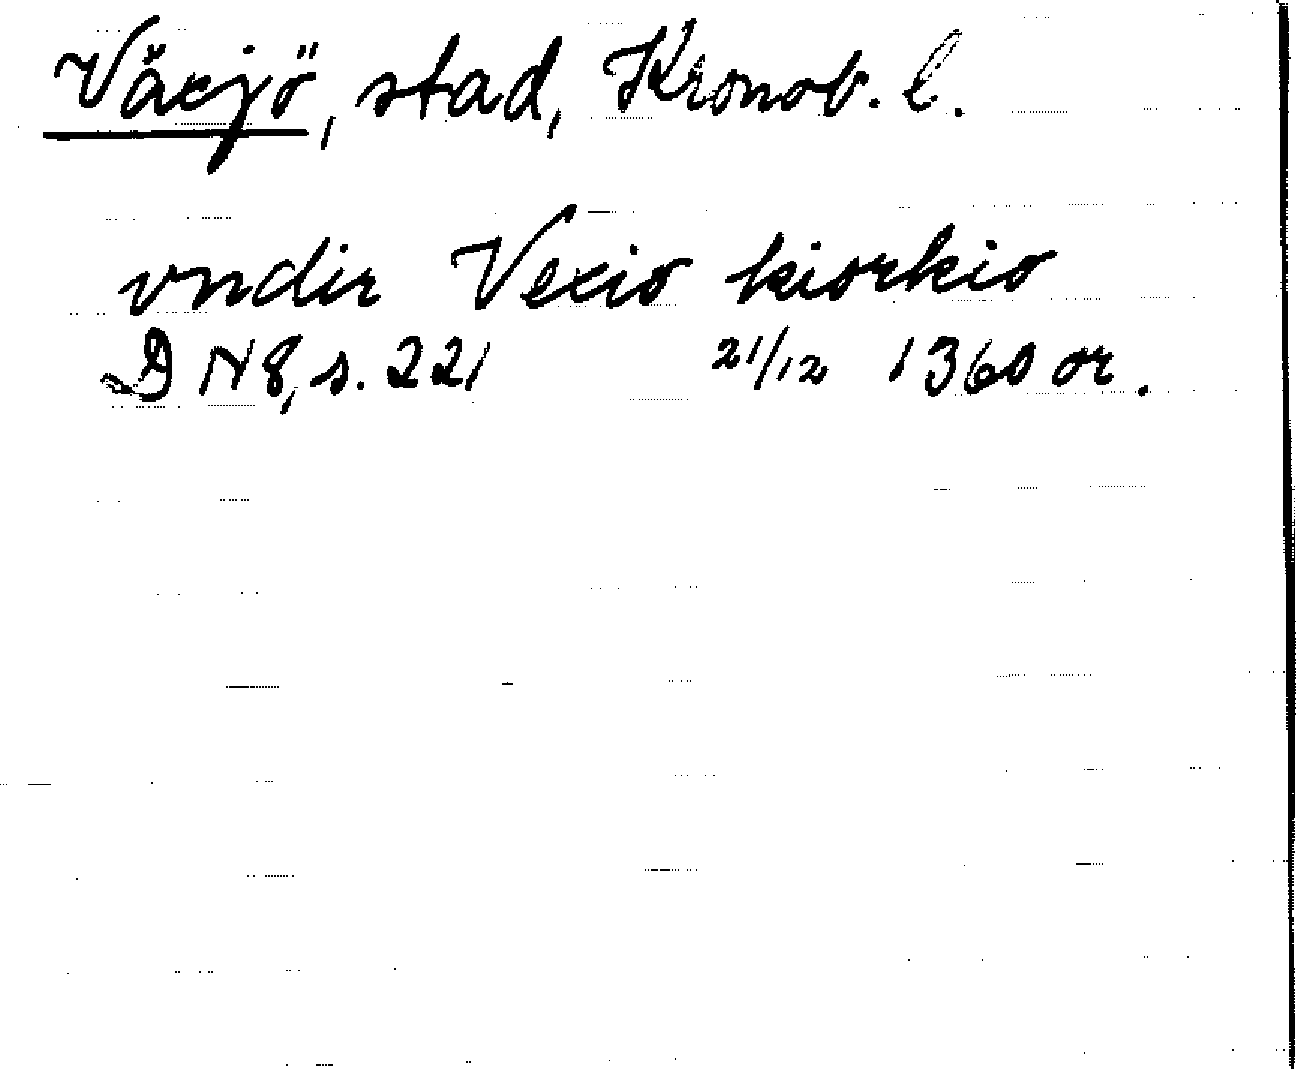 Växjö, stad, Kronob. l.
vndir Vexio kiorkio
DN 8, s. 221 21/12 1360 or.